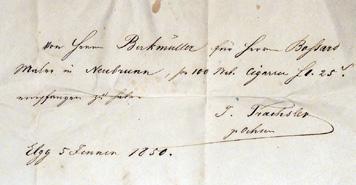 Von Herrn Birkmüller für Herrn Bossard
Maler in Neubrunn, pr 100 Cigarren fl. 25
empfangen zu haben
J. Traechsler
z Ochsen
Elgg 5 Jenner 1850.